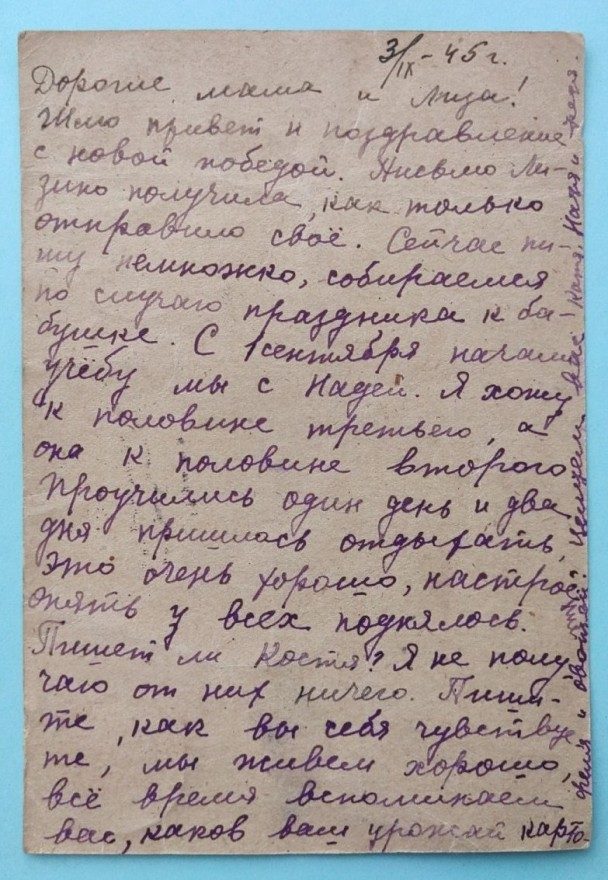 3/IX-45 г.
Дорогие мама и Лиза!
Шлю привет и поздравление
с новой победой. Письмо Ли-
зино получила, как только
отправило своё. Сейчас пи-
шу немножко, собираемся
по случаю праздника к ба-
бушке. С 1 сентября начали
учёбу мы с Надей. Я хожу
к половине третьего, а
она к половине второго
Проучились один день и два
дня пришлось отдыхать,
это очень хорошо, настрое-
опять у всех поднялось.
Пишет ли Костя? Я не полу
чаю от них ничего. Пиши-
те, как вы себя чувствуе-
те, мы живем хорошо,
всё время вспоминаем
вас, каков ваш урожай карто-
феля и овощей. Целуем вас Катя, Надя и